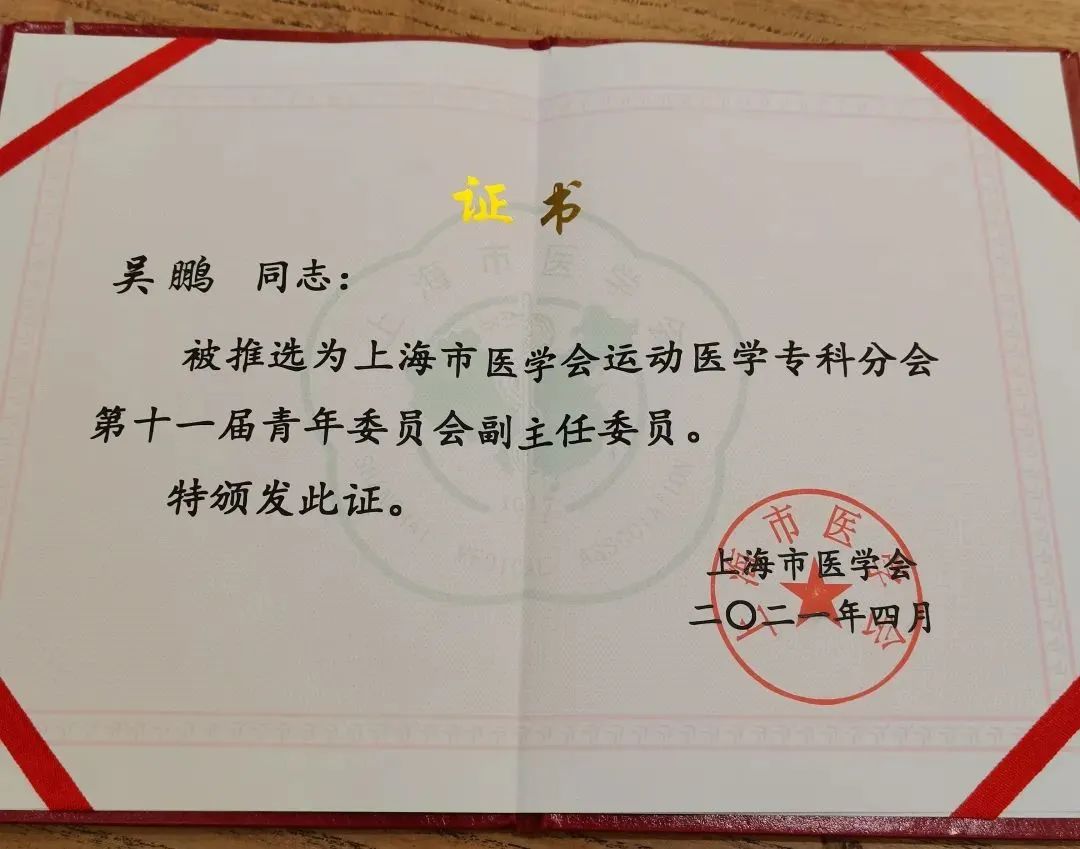 证书
吴鹏 同志：
被推选为上海市医学会运动医学专科分会
第十一届青年委员会副主任委员。
特颁发此证。
上海市医学会
二〇二一年四月
上海市医学会
上海市医学会
1917